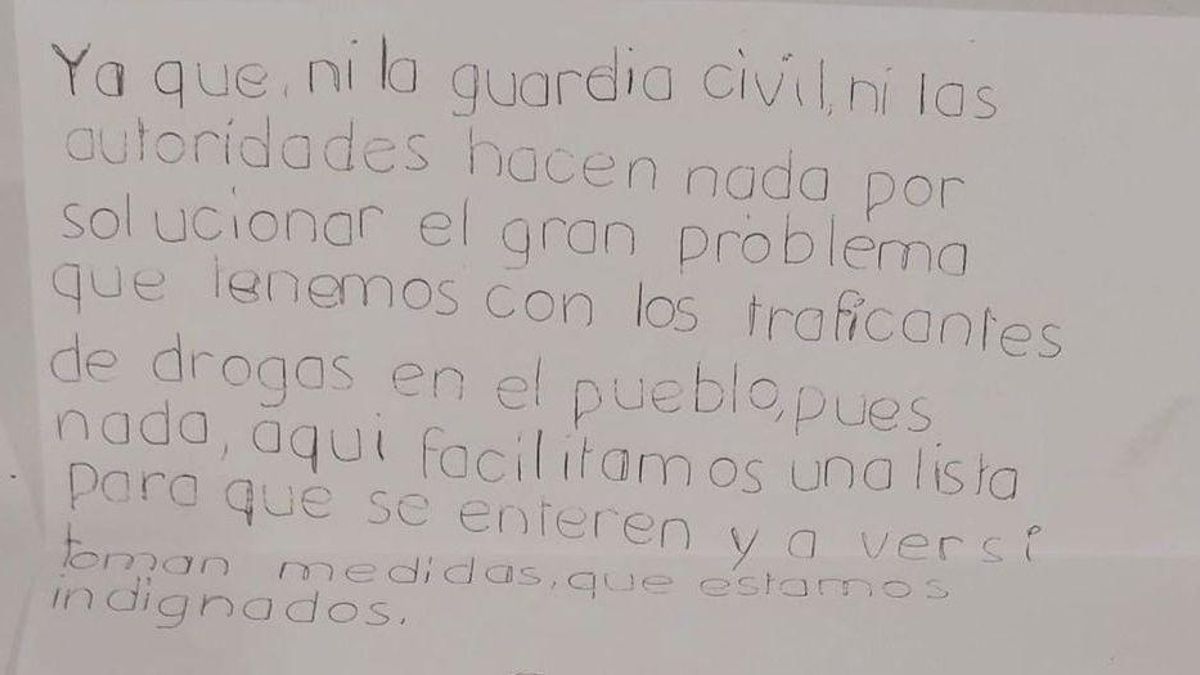 Ya que, ni la guardia civil, ni las
autoridades hacen nada por
solucionar el gran problema
que tenemos con los traficantes
de drogas en el pueblo, pues
nada, aqui facilitamos una lista
para que se enteren y a ver si
toman medidas, que estamos
indignados.